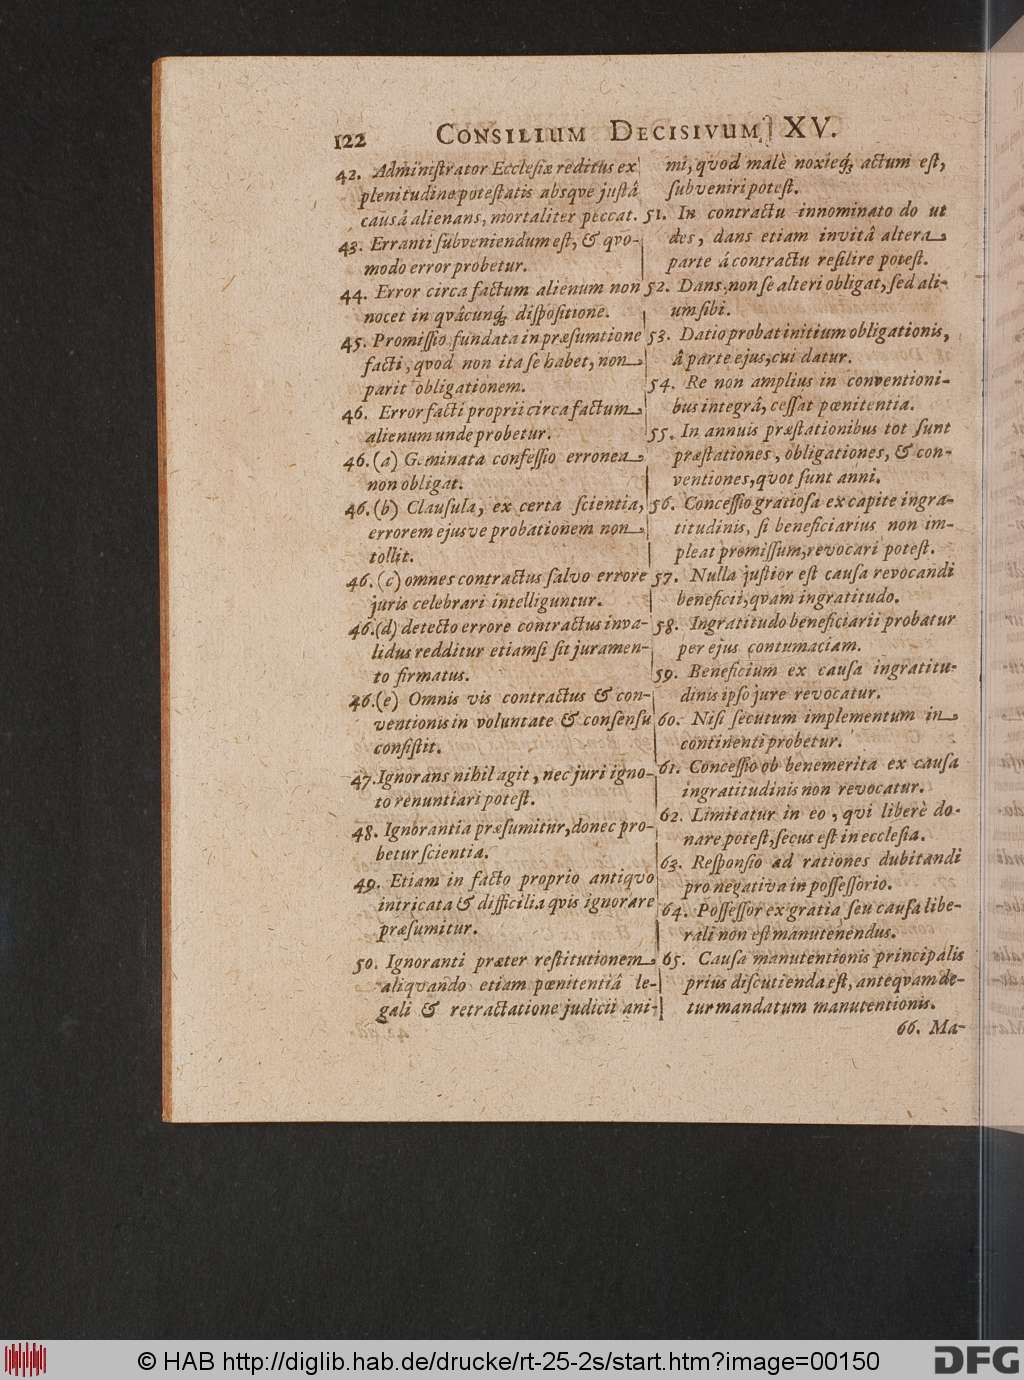 122 CONSILIUM DECISIVUM, XV.
42. Administrator Ecclesiæ reditus ex
plenitudine potestatis absqve justâ
causâ alienans, mortaliter peccat.
43. Erranti subveniendum est, & qvo-
modo error probetur.
44. Error circa factum alienum non
nocet in qvâcunq; dispositione.
45. Promissio fundata in præsumtione
facti, qvod non ita se habet, non
parit obligationem.
46. Error facti proprii circa factum
alienum unde probetur.
46. (a) Geminata confessio erronea
non obligat.
46. (b) Clausula, ex certa scientia,
errorem ejusve probationem non
tollit.
46. (c) omnes contractus salvo errore
juris celebrari intelliguntur.
46. (d) detecto errore contractus inva-
lidus redditur etiamsi sit juramen-
to firmatus.
46. (e) Omnis vis contractus & con-
ventionis in voluntate & consensu
consistit.
47. Ignorans nihil agit, nec juri igno-
to renuntiari potest.
48. Ignorantia præsumitur, donec pro-
betur scientia.
49. Etiam in facto proprio antiqvo
intricata & difficilia qvis ignorare
præsumitur.
50. Ignoranti præter restitutionem
aliquando etiam pœnitentiâ le-
gali & retractatione judicii ani-
mi, qvod malè noxieq; actum est,
subveniri potest.
51. In contractu innominato do ut
des, dans etiam invitâ altera
parte á contractu resilire potest.
52. Dans, non se alteri obligat, sed ali-
um sibi.
53. Datio probat initium obligationis,
â parte ejus, cui datur.
54. Re non amplius in conventioni-
bus integrâ, cessat pœnitentia.
55. In annuis præstationibus tot sunt
præstationes, obligationes, & con-
ventiones, qvot sunt anni.
56. Concessio gratiosa ex capite ingra-
titudinis, si beneficiarius non im-
pleat promissum, revocari potest.
57. Nulla justior est causa revocandi
beneficii, qvam ingratitudo.
58. Ingratitudo beneficiarii probatur
per ejus contumaciam.
59. Beneficium ex causa ingratitu-
dinis ipso jure revocatur.
60. Nisi secutum implementum in
continenti probetur.
61. Concessio ob benemerita ex causa
ingratitudinis non revocatur.
62. Limitatur in eo, qvi liberè do-
nare potest, secus est in ecclesia.
63. Responsio ad rationes dubitandi
pro negativa in possessorio.
64. Possessor ex gratia seu causa libe-
rali non est manutenendus.
65. Causa manutentionis principalis
prius discutienda est, anteqvam de-
tur mandatum manutentionis.
66. Ma-
© HAB http://diglib.hab.de/drucke/rt-25-2s/start.htm?image=00150
DFG